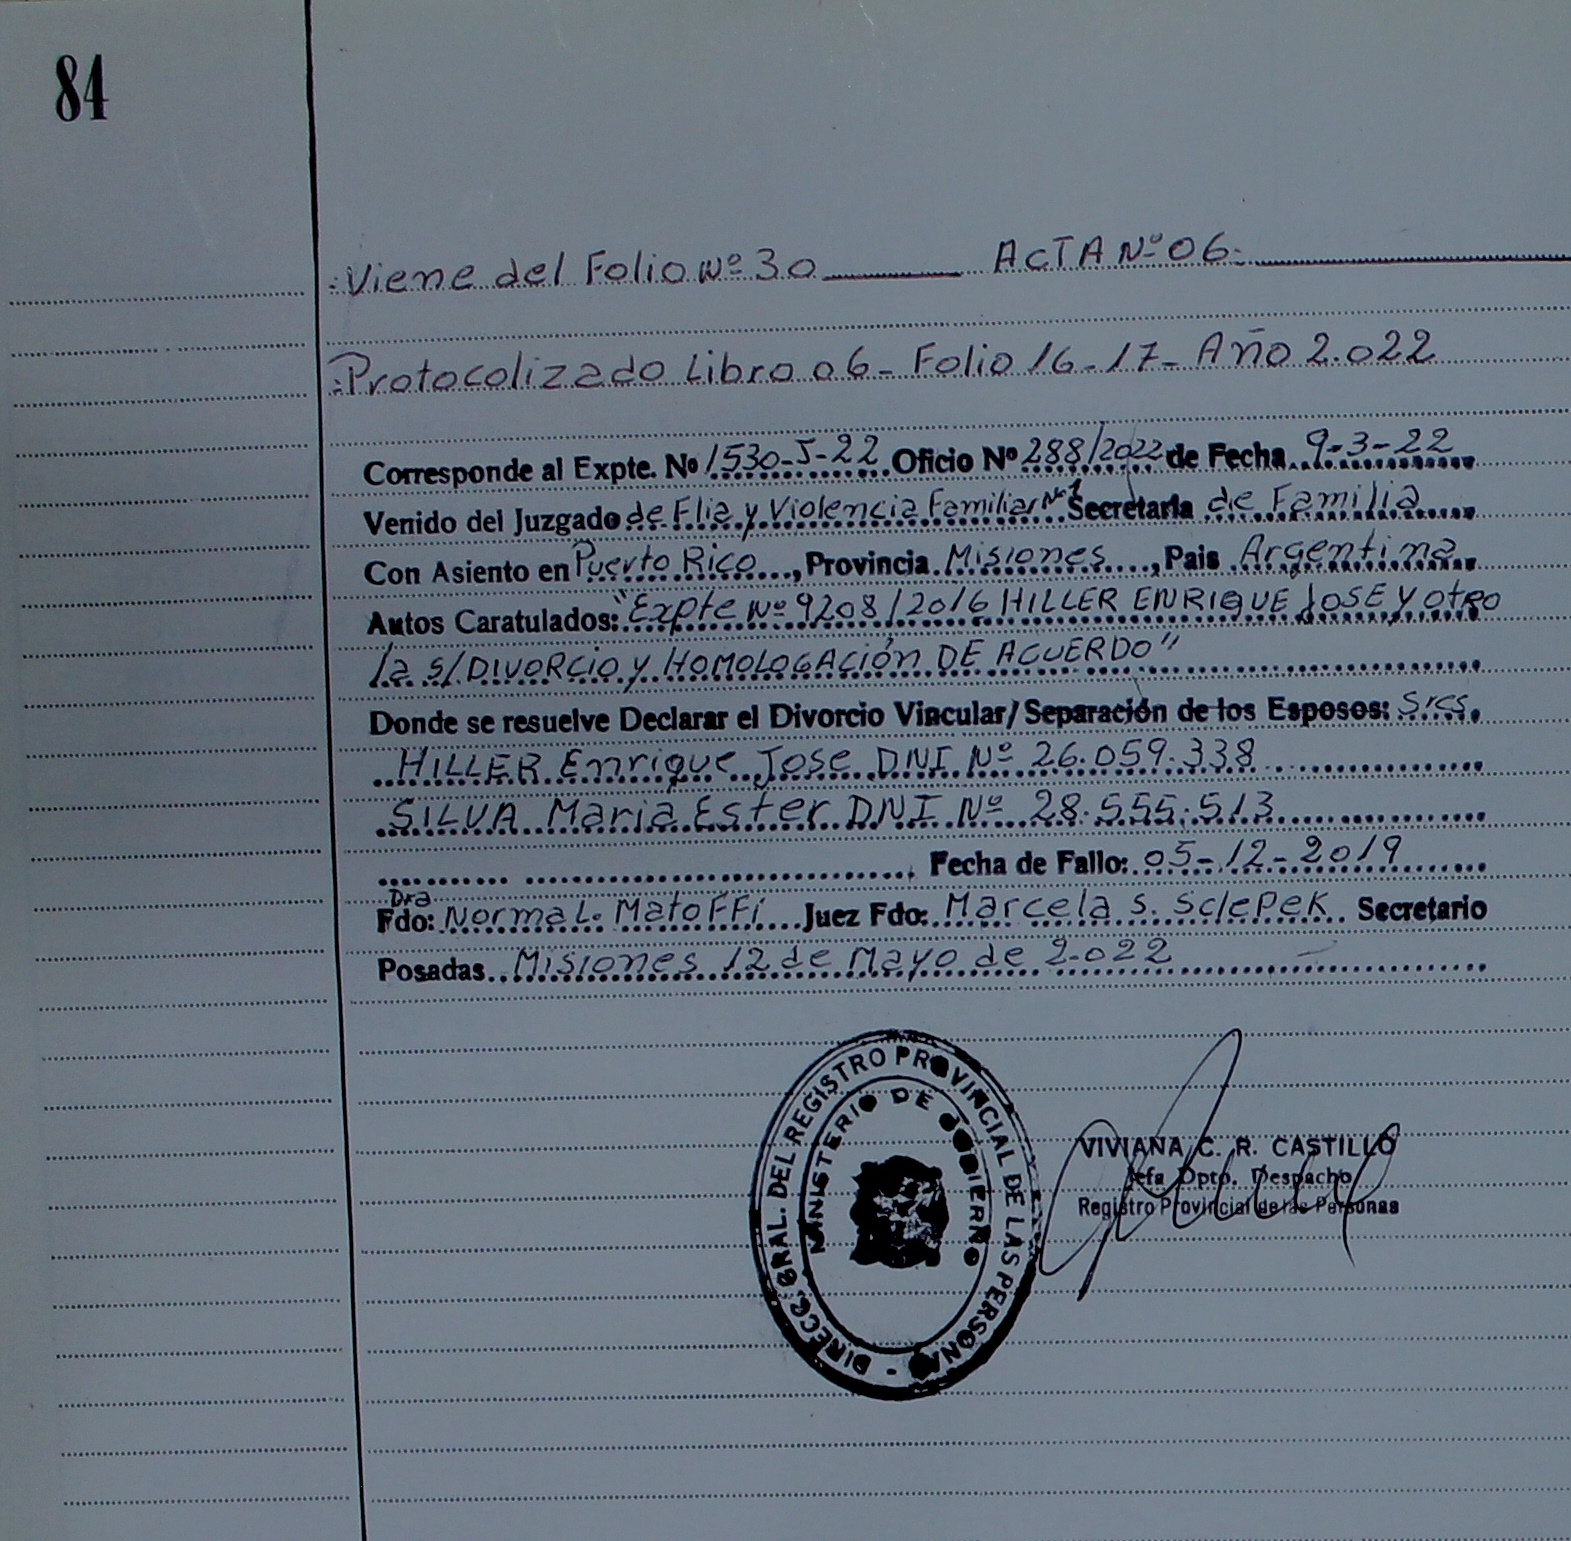 84
Viene del Folio Nº 30 ACTA Nº 06-
Protocolizado Libro 06 - Folio 16-17- Año 2.022
Corresponde al Expte. Nº 1530-J-22 Oficio Nº 288/2022 de Fecha 9-3-22
Venido del Juzgado de Flia y Violencia Familiar Nº1 Secretaria de Familia
Con Asiento en Puerto Rico, Provincia Misiones, Pais Argentina
Autos Caratulados: "Expte Nº 9208/2016 HILLER ENRIQUE JOSE Y otro
/a s/DIVORCIO y HOMOLOGACIÓN DE ACUERDO"
Donde se resuelve Declarar el Divorcio Vincular/Separación de los Esposos: Sres
HILLER Enrique Jose DNI Nº 26.059.338
SILVA Maria Ester DNI Nº 28.555.513
Fecha de Fallo: 05-12-2019
Dra
Fdo: Norma L. Matoffi Juez Fdo: Marcela S. Sclepek Secretario
Posadas Misiones 12 de Mayo de 2.022
DIRECC. GRAL. DEL REGISTRO PROVINCIAL DE LAS PERSONAS -
MINISTERIO DE GOBIERNO
VIVIANA C. R. CASTILLO
Jefa Dpto. Despacho
Registro Provincial de las Personas